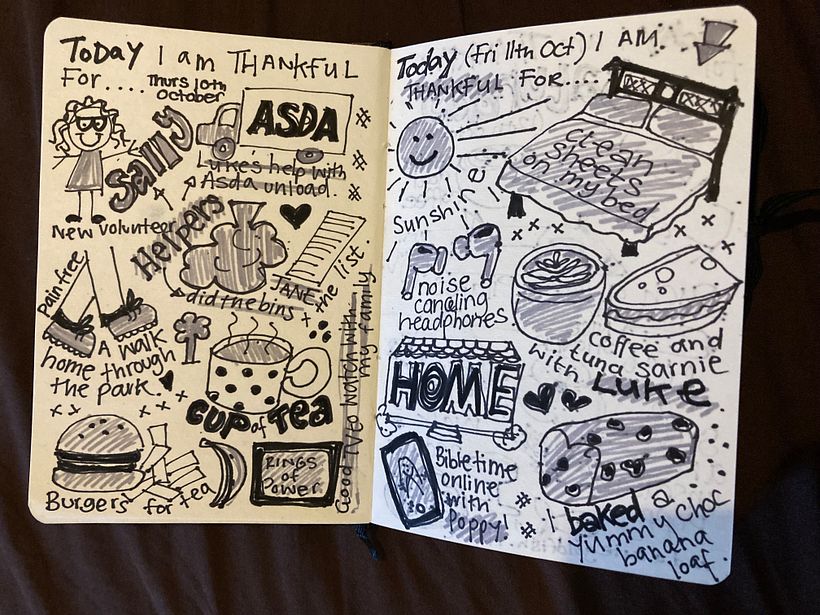 Today I am THANKFUL
For.... Thurs 10th
October
Sally
ASDA
Luke's help with
Asda unload.
New volunteer
Helpers
JANE
did the bins + the list.
Pain free
A walk
home through
the park.
CUP of TEA
Good TV to watch with
my family
Burgers for tea
RINGS
OF
POWER
Today (Fri 11th Oct) I AM
THANKFUL FOR....
clean
sheets
on my bed
Sunshine
noise
canceling
headphones
coffee and
tuna sarnie
with LUKE
HOME
Bible time
online
with
Poppy!
I baked a
yummy choc
banana
loaf.